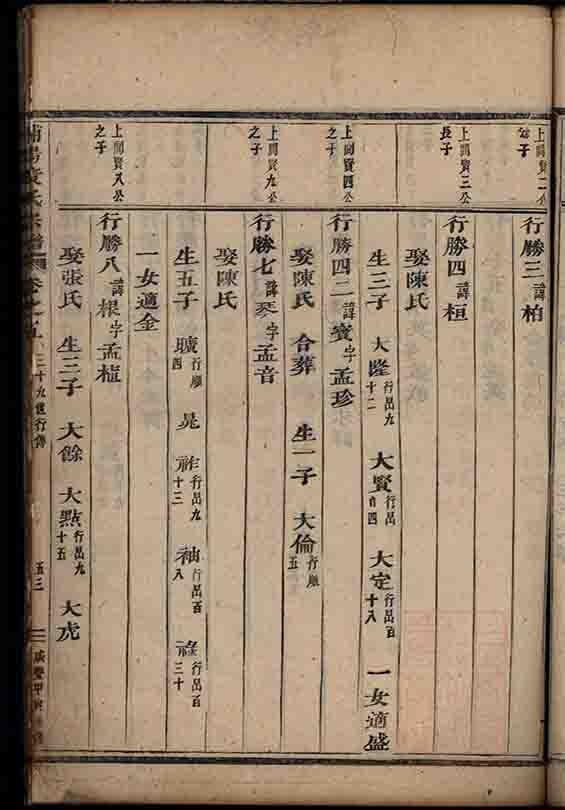 上閏賢二公
子
行勝三諱柏
上閏賢三公
長子
行勝四諱桓
娶陳氏
生三子 大隆行昂九十二 大賢行昂百四 大定行昂百十八 一女適盛
上閏賢四公
之子
行勝四二諱賓字孟珍
娶陳氏 合葬 生一子 大倫行順五
上閏賢九公
之子
行勝七諱琴字孟音
娶陳氏
生五子 曠行順四 晃 祚行昂九十三 袖行昂百八 祿行昂百三十
一女適金
上閏賢八公
之子
行勝八諱根字孟植
娶張氏 生三子 大餘 大點行昂九十五 大虎
氏宗譜 卷之五 三十九世行傳 五三